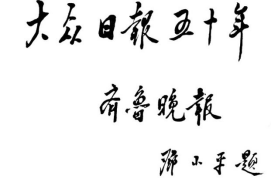 大众日报五十年
齐鲁晚报
邓小平题